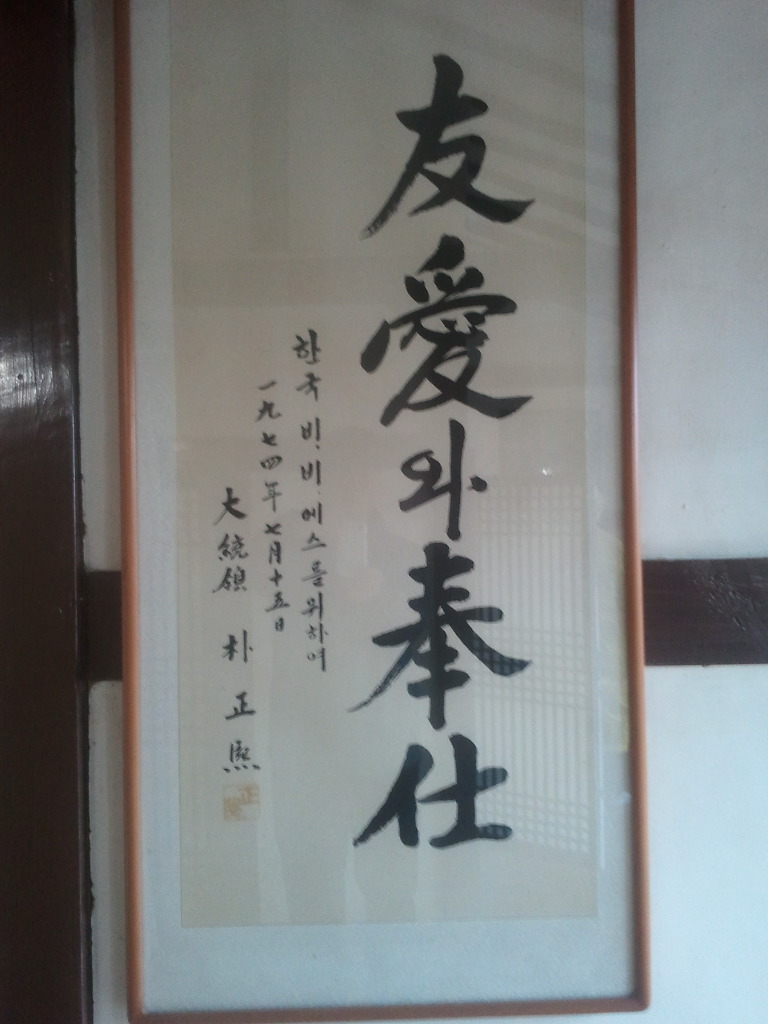 友愛와奉仕
한국 비.비.에스를위하여
一九七四年七月十五日
大統領 朴正熙